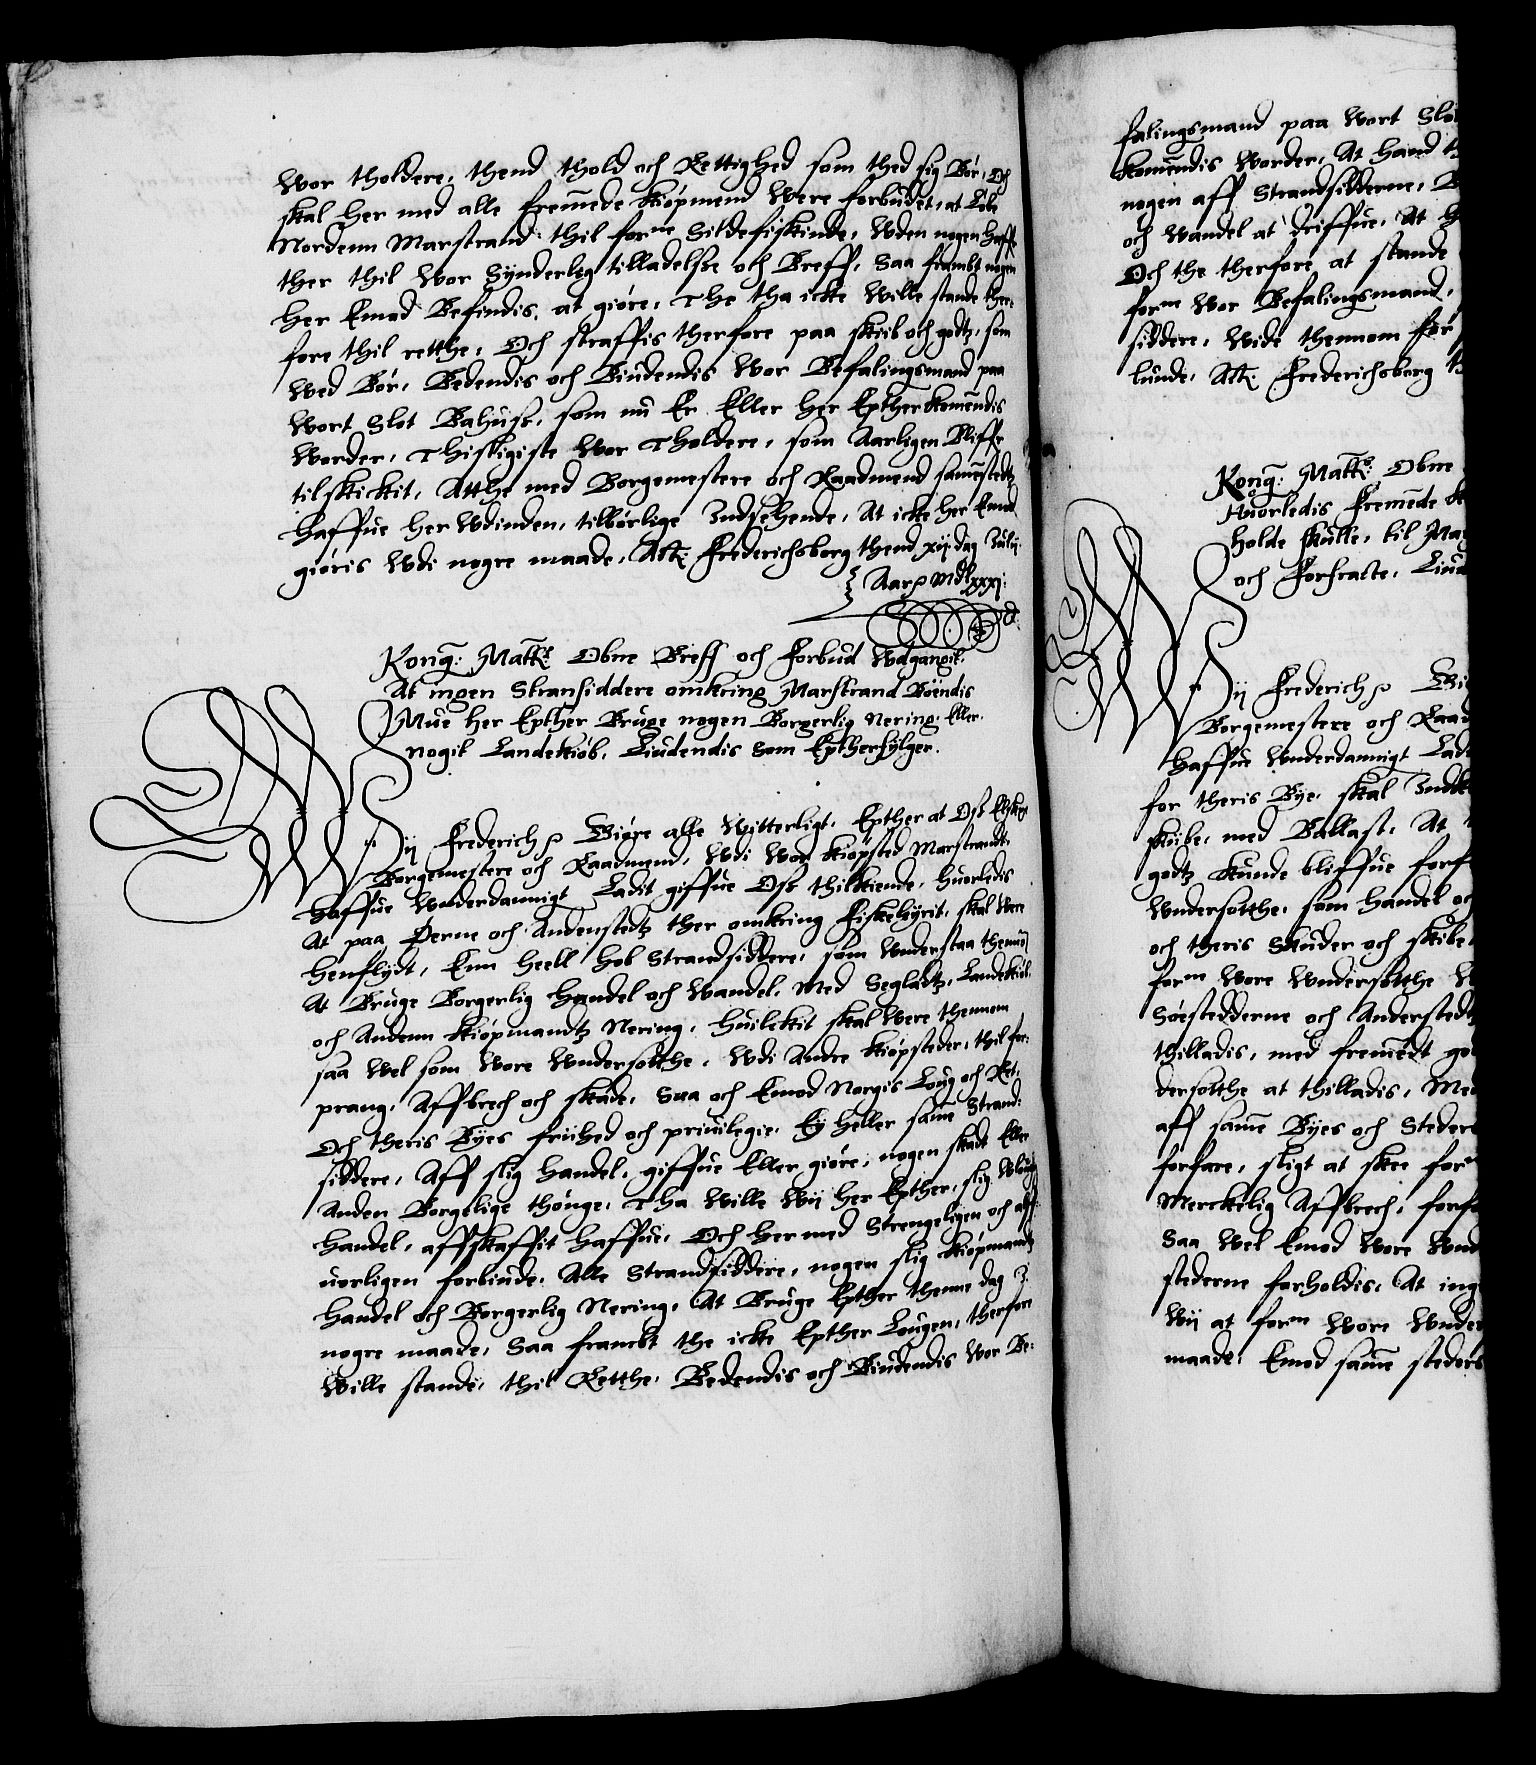 Wor tholdere, thend thold och Rettighed som thed sig Bør, Och
skal her med alle fremmede kiøpmend Were forbudet, at Løbe
Nordenn Marstrand thil forne Sildefiskinde, Vden nogen haffr
ther thil Wor Synderlig tilladelsse och Breff, Saa frambt nogen
her Emod Befindis, at giøre, The tha icke Wille stande ther
fore thil retthe, Och straffis therfore paa skiib och godtz, som
Wed Bør, Bedendis och Biudendis Wor Befalingsmand paa
Wort Slot Bahuss, som nu Er Eller her Epther kommendis
Worder, Thisligiste Wor Tholdere, som Aarligen Bliffr
tilskickit, Atthe med Borgemestere och Raadmend sammestedtz
haffue her Wdinden, tilbørlige Indseehende, At icke her Emod
giøris Wdi nogre maade, Actt Frederichsborg thend xij dag Julij
Aar mdlxxxj:
Konng: Matts Obne Breff och Forbud Wdganget,
At ingen Stransiddere omkring Marstrand Boendis
Mue her Epther Bruge nogen Borgerlig Nering, Eller
Nogit Landekiøb, Liudendis Som Eptherfylger.
Wij Frederich Giøre alle Witterligt, Epther at Oss Elskelige
Borgemestere och Raadmend, Wdi Wor kiøpsted Marstrandt
haffue Wnderdannigt Ladit giffue Oss thilkiende, huorledis
At paa Øerne och Andenstedtz ther omkring Fiskehyrit, skal Were
henflydt, Enn heell hob Strandsiddere, som Wnderstaa thennom
At Bruge Borgerlig Handel och Wandel, Med Segladtz, Landekiøb,
och Andenn kiøpmandtz Nering, Huilckit skal Were thennom
saa Wel som Wore Wndersotthe, Wdi Andre kiøpsteder, thil for:
prang, Affbrech och skade, Saa och Emod Norgis Loug och Ret,
Och theris Byes friihed och priuilegie, Ey heller samme Strand:
siddere, Aff slig handel, giffue Eller giøre, nogen skadt Eller
Anden Borgelige thounge, Tha Wille Wij her Epther, slig Wlouglig
Handel, affskaffit haffue, Och hermed Strengeligen och alff
uorligen forbiude, Alle Strandsiddere, nogen slig kiøpmandtz
Handel och Borgerlig Nering, At Bruge Epther thenne dag I
nogre maade, Saa frambt the icke Epther Lougen, therfore
Wille stande, thil Retthe, Bedendis och Biudendis Wor Be:
falingsmand paa Wort Slo
kommendis Worder, At hand th
nogen aff Strandsidderne, B
och Wandel at driffue, At h
Och the therfore at stande
forne Wor Befalingsmand,
siddere, Wide thennom for
lunde, Actt Frederichsborg th
Konng: Matts: Obne
Huorledis Fremmede k
holde skulle, til Mar
och Forfracte, Liud
Wij Frederich Gi
Borgemestere och Raad
haffue Wnderdannigt Lad
for theris Bye, skal Indk
skiibe, med Ballast, At
godtz kunde bliffue forf
Wndersotthe, som handel oc
och theris Skuder och skibe,
forne Wore Wndersotthe W
Søestedderne och Anderstedt
thilladis, med fremmedt go
dersotthe at thilladis, Me
aff samme Byes och Steder
forfare, sligt at skee forn
Merckelig Affbrech, forf
Saa Wel Emod Wore Wnd
stederne forholdis, At ing
Wij at forne Wore Wnder
maade, Emod samme steders